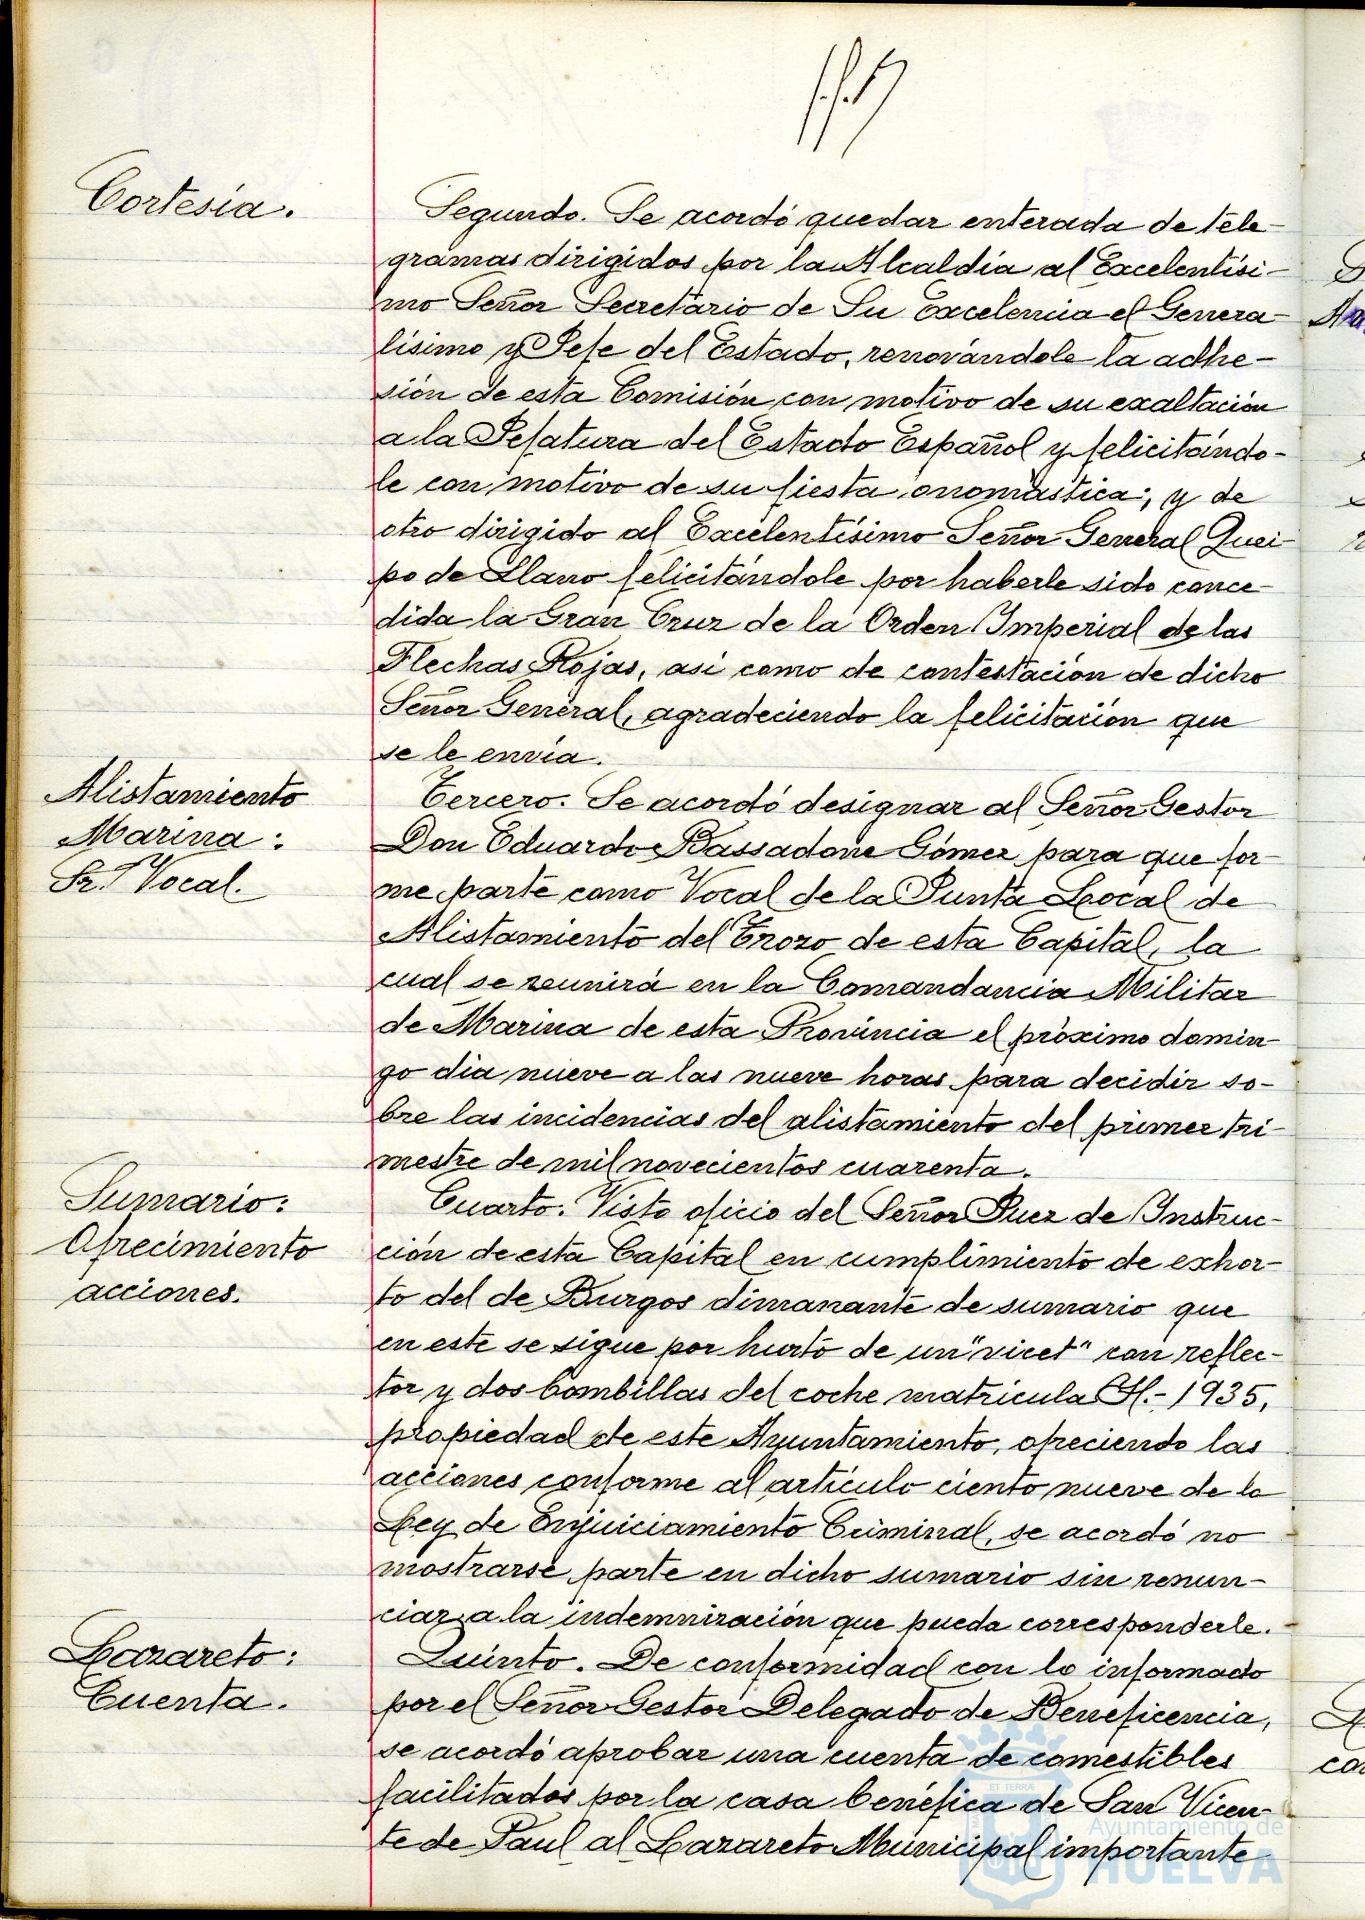 Cortesía.
Segundo. Se acordó quedar enterada de tele-
gramas dirigidos por la Alcaldía al Excelentísi-
mo Señor Secretario de Su Excelencia el Genera-
lísimo y Jefe del Estado, renovándole la adhe-
sión de esta Comisión con motivo de su exaltación
a la Jefatura del Estado Español y felicitándo-
le con motivo de su fiesta onomástica; y de
otro dirigido al Excelentísimo Señor General Quei-
po de Llano felicitándole por haberle sido conce-
dida la Gran Cruz de la Orden Imperial de las
Flechas Rojas, así como de contestación de dicho
Señor General, agradeciendo la felicitación que
se le envía.
Alistamiento
Marina:
Sr. Vocal.
Tercero. Se acordó designar al Señor Gestor
Don Eduardo Bassadone Gómez para que for-
me parte como Vocal de la Junta Local de
Alistamiento del Trozo de esta Capital, la
cual se reunirá en la Comandancia Militar
de Marina de esta Provincia el próximo domin-
go dia nueve a las nueve horas para decidir so-
bre las incidencias del alistamiento del primer tri-
mestre de mil novecientos cuarenta.
Sumario:
Ofrecimiento
acciones.
Cuarto. Visto oficio del Señor Juez de Instruc-
ción de esta Capital en cumplimiento de exhor-
to del de Burgos dimanante de sumario que
en este se sigue por hurto de un "vicet" con reflec-
tor y dos bombillas del coche matrícula H.- 1935,
propiedad de este Ayuntamiento, ofreciendo las
acciones conforme al artículo ciento nueve de la
Ley de Enjuiciamiento Criminal, se acordó no
mostrarse parte en dicho sumario sin renun-
ciar a la indemnización que pueda corresponderle.
Lazareto:
Cuenta.
Quinto. De conformidad con lo informado
por el Señor Gestor Delegado de Beneficencia,
se acordó aprobar una cuenta de comestibles
facilitados por la casa benéfica de San Vicen-
te de Paul al Lazareto Municipal importante
Ayuntamiento de
HUELVA